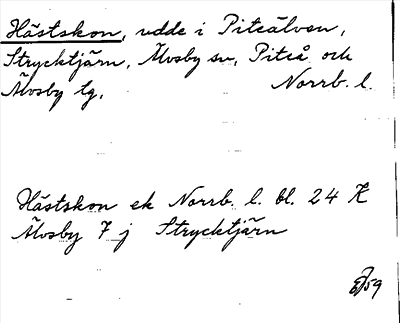 Hästskon, udde i Piteälven,
Strycktjärn, Älvsby sn, Piteå och
Älvsby tg. Norrb. l.
Hästskon ek Norrb. l. bl. 24 K
Älvsby 7 j Strycktjärn
59